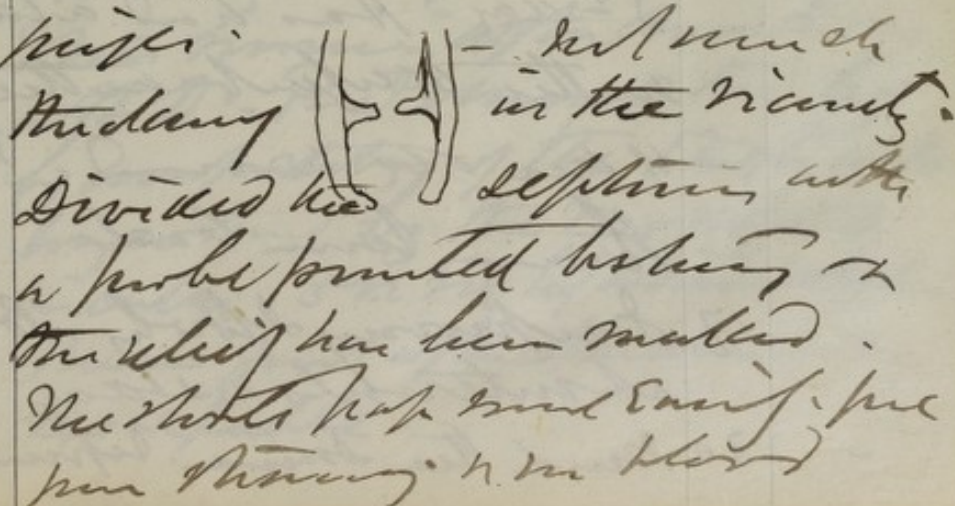 finger. - not much
thickening in the vicinity.
Divided the septum with
a probe pointed bistoury &
the relief has been marked.
The stools pass more easily.
straining blood